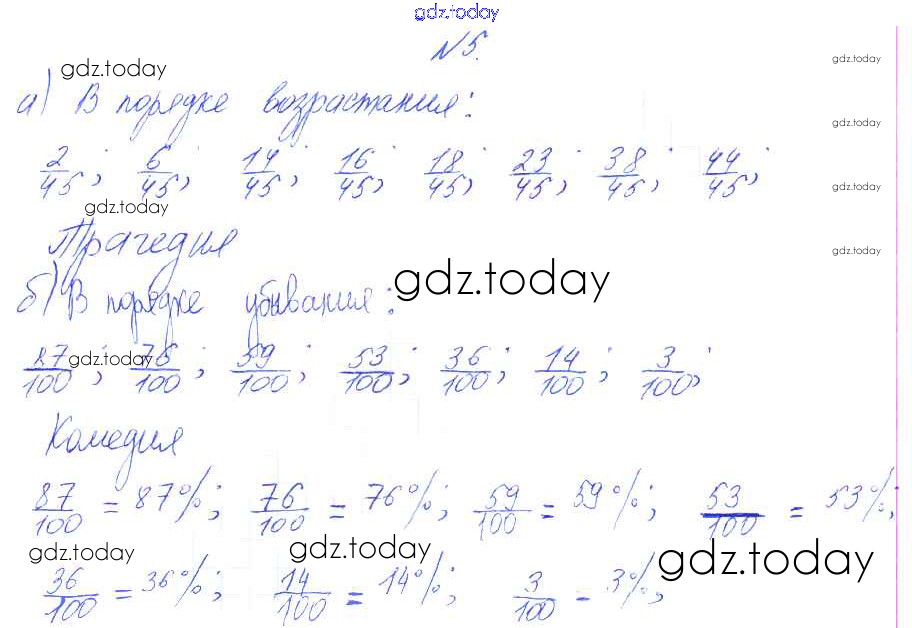 gdz.today
№5.
gdz.today gdz.today
а) В порядке возрастания:
gdz.today
2/45; 6/45; 14/45; 16/45; 18/45; 23/45; 38/45; 44/45;
gdz.today
gdz.today
Трагедия
gdz.today
б) В порядке убывания:
gdz.today
87/100; 76/100; 59/100; 53/100; 36/100; 14/100; 3/100;
gdz.today
Комедия
87/100 = 87%; 76/100 = 76%; 59/100 = 59%; 53/100 = 53%;
gdz.today gdz.today gdz.today
36/100 = 36%; 14/100 = 14%; 3/100 = 3%;